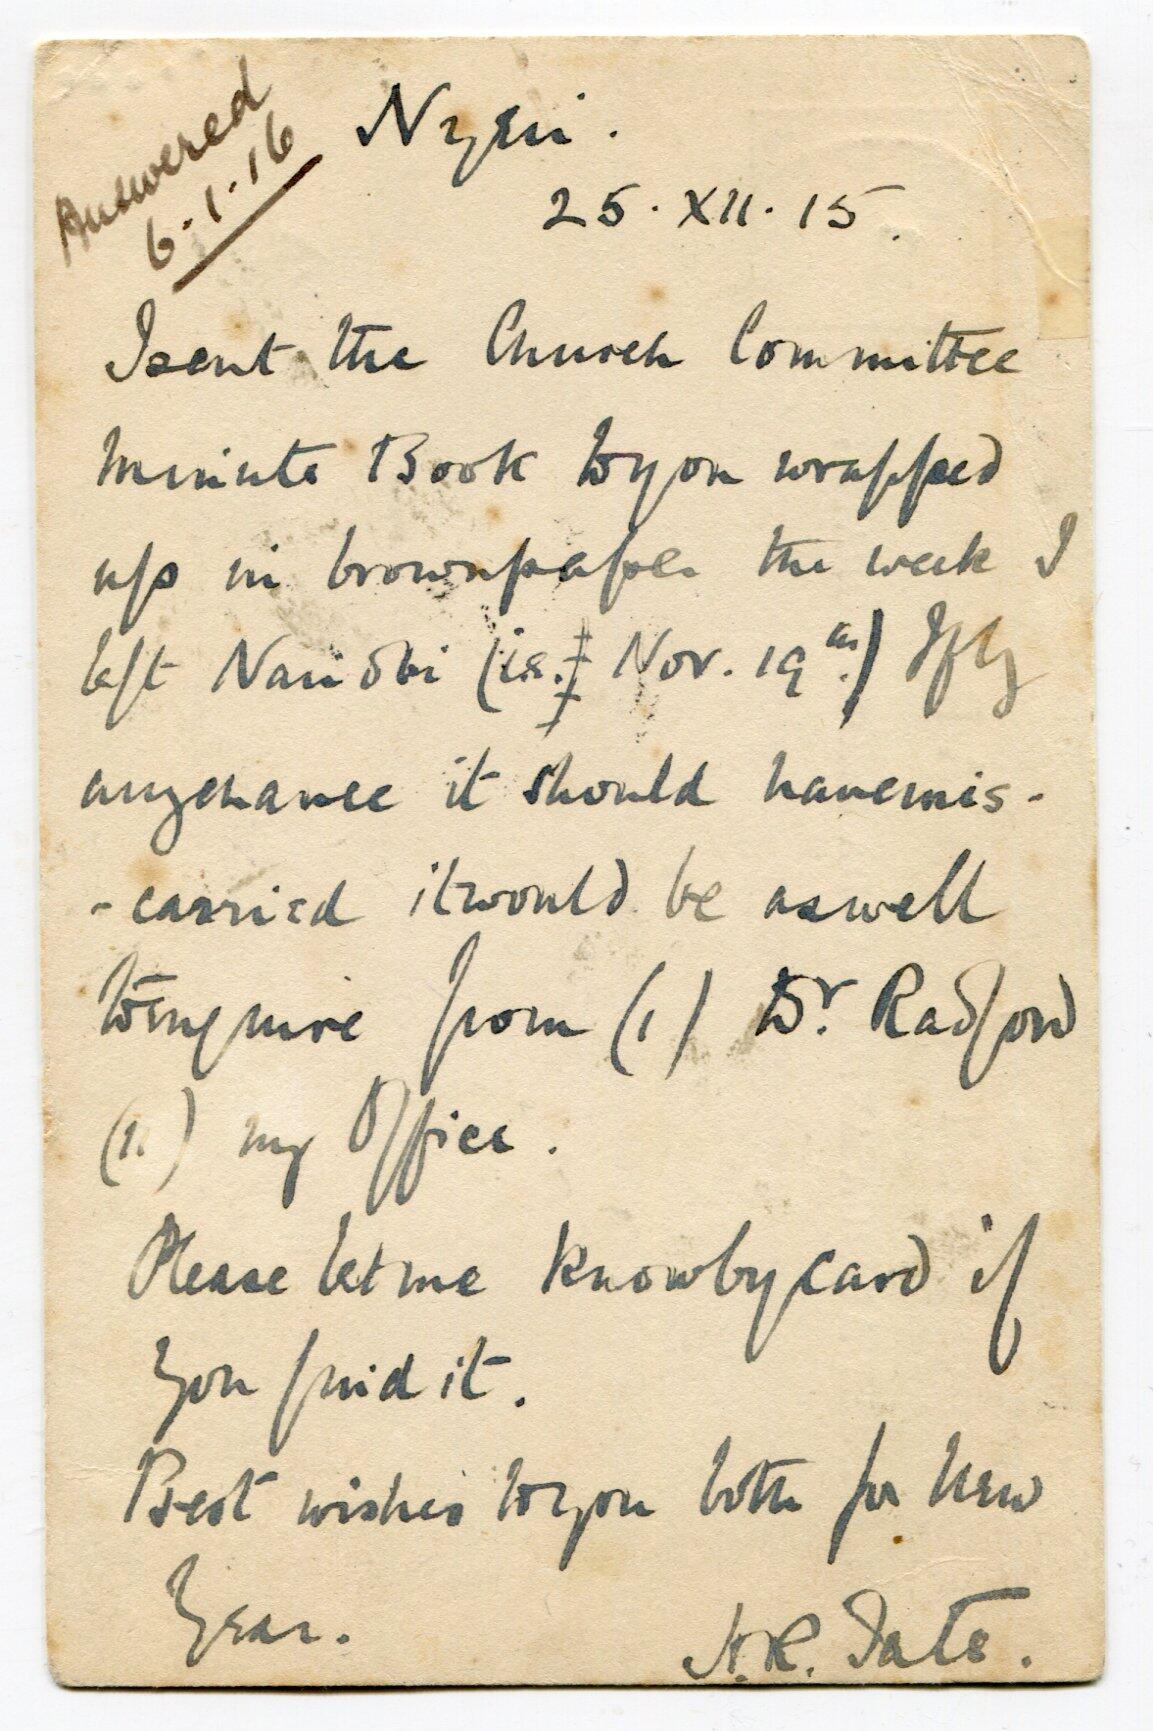 Answered
6.1.16
Nyeri.
25.XII.15.
I sent the Church Committee
Minute Book to you wrapped
up in brown paper the week I
left Nairobi (i.e. Nov. 19th.) If by
any chance it should have mis-
-carried it would be as well
to enquire from (1) Dr. Radford
(11) my Office.
Please let me know by card if
you find it.
Best wishes to you both for New
Year.
H.R. Tate.